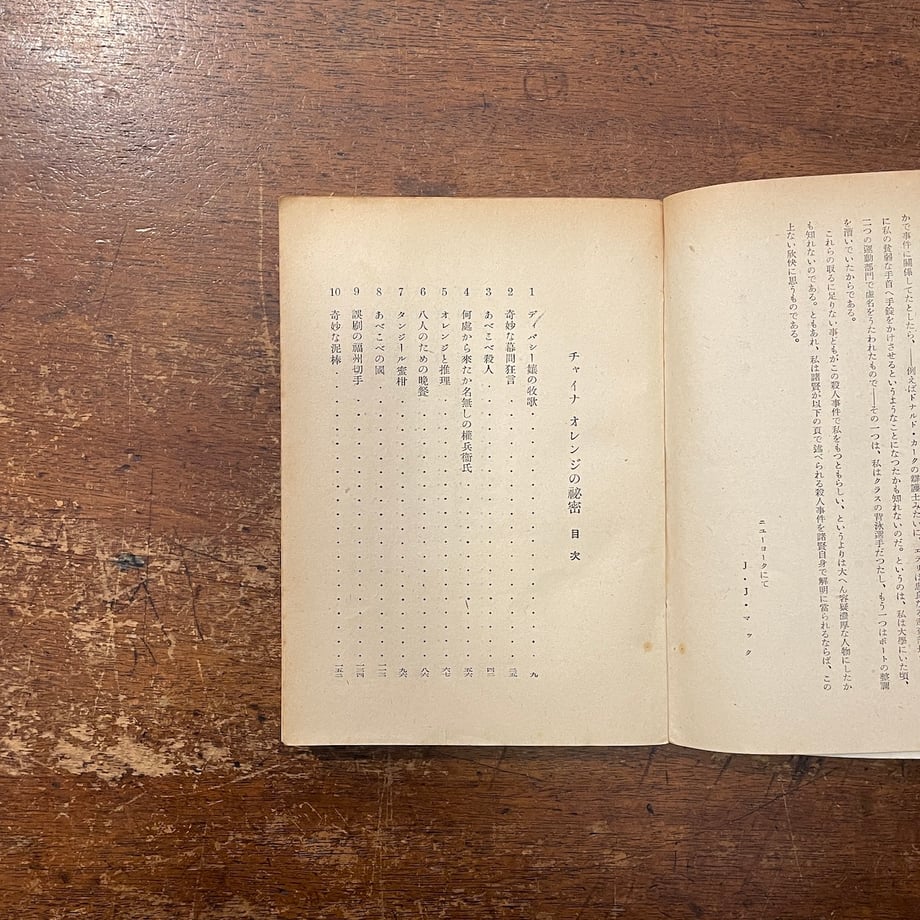 かで事件に關係してたとしたら、例えばドナルド・カークの辯護士みたい
に私の貧弱な手首へ手錠をかけさせるというようなことになつたかも知れないのだ。というのは、私は大學にいた頃、
二つの運動部門で虚名をうたわれたもので――その一つは、私はクラスの背泳選手だつたし、もう一つはボートの整調
を漕いでいたからである。
これらの取るに足りない事どもがこの殺人事件で私をもつともらしい、というよりは大へん容疑濃厚な人物にしたか
も知れないのである。ともあれ、私は諸賢が以下の頁で述べられる殺人事件を諸賢自身で解明に當られるならば、この
上ない欣快に思うものである。
ニューヨークにて
J・J・マック
チャイナ オレンジの祕密 目次
1 ディバシー孃の牧歌 九
2 奇妙な幕間狂言 二五
3 あべこべ殺人 四二
4 何處から來たか名無しの權兵衞氏 五六
5 オレンジと推理 六七
6 八人のための晩餐 八六
7 タンジール蜜柑 九六
8 あべこべの國 一一二
9 誤刷の福州切手 一三四
10 奇妙な泥棒 一五二